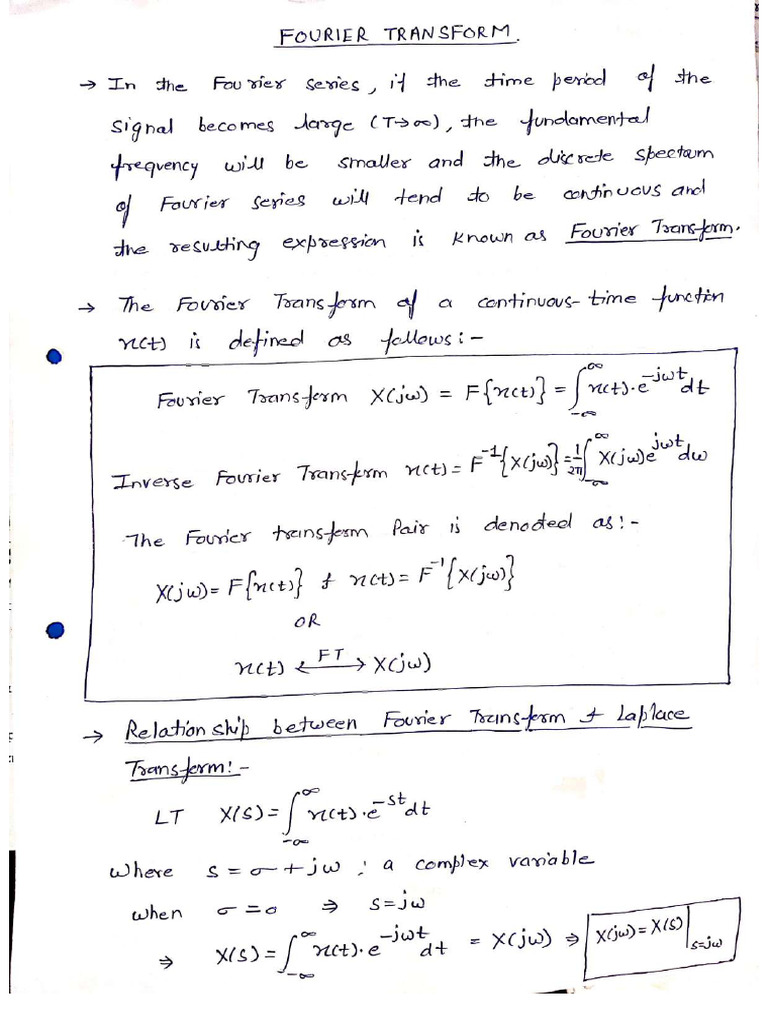 FOURIER TRANSFORM.
→ In the Fourier series, if the time period of the
signal becomes large (T→∞), the fundamental
frequency will be smaller and the discrete spectrum
of Fourier series will tend to be continuous and
the resulting expression is known as Fourier Transform.
→ The Fourier Transform of a continuous-time function
x(t) is defined as follows:-
Fourier Transform X(jω) = F{x(t)} = ∫_{-∞}^{∞} x(t)·e^{-jωt} dt
Inverse Fourier Transform x(t) = F^{-1}{X(jω)} = 1/2π ∫_{-∞}^{∞} X(jω)e^{jωt} dω
The Fourier transform Pair is denoted as:-
X(jω) = F{x(t)} & x(t) = F^{-1}{X(jω)}
OR
x(t) ←FT→ X(jω)
→ Relationship between Fourier Transform & Laplace
Transform:-
LT X(s) = ∫_{-∞}^{∞} x(t)·e^{-st} dt
where s = σ + jω : a complex variable
when σ = 0 ⇒ s = jω
⇒ X(s) = ∫_{-∞}^{∞} x(t)·e^{-jωt} dt = X(jω) ⇒ X(jω) = X(s)|_{s=jω}